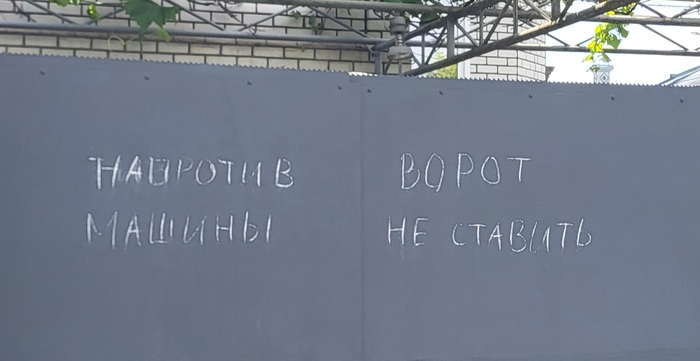 НАПРОТИВ ВОРОТ
МАШИНЫ НЕ СТАВИТЬ